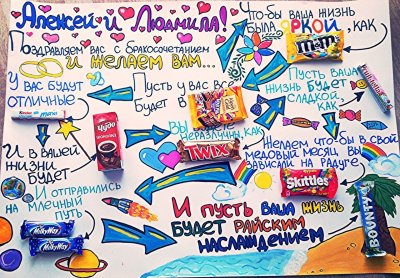 Алексей и Людмила!
Поздравляем вас с бракосочетанием
и желаем вам...
Что-бы ваша жизнь
была яркой, как
m&m's
Пусть ваша
жизнь будет
сладкой,
как
Пусть у вас всё
будет в
У вас будут
отличные
Kinder
Чудо
И в вашей
жизни
будет
Вы
неразлучны, как
TWIX
Желаем что-бы в свой
медовый месяц, вы
зависали на радуге
Skittles
И отправились
на млечный
путь
MilkyWay
MilkyWay
И пусть ваша жизнь
будет райским
наслаждением
BOUNTY